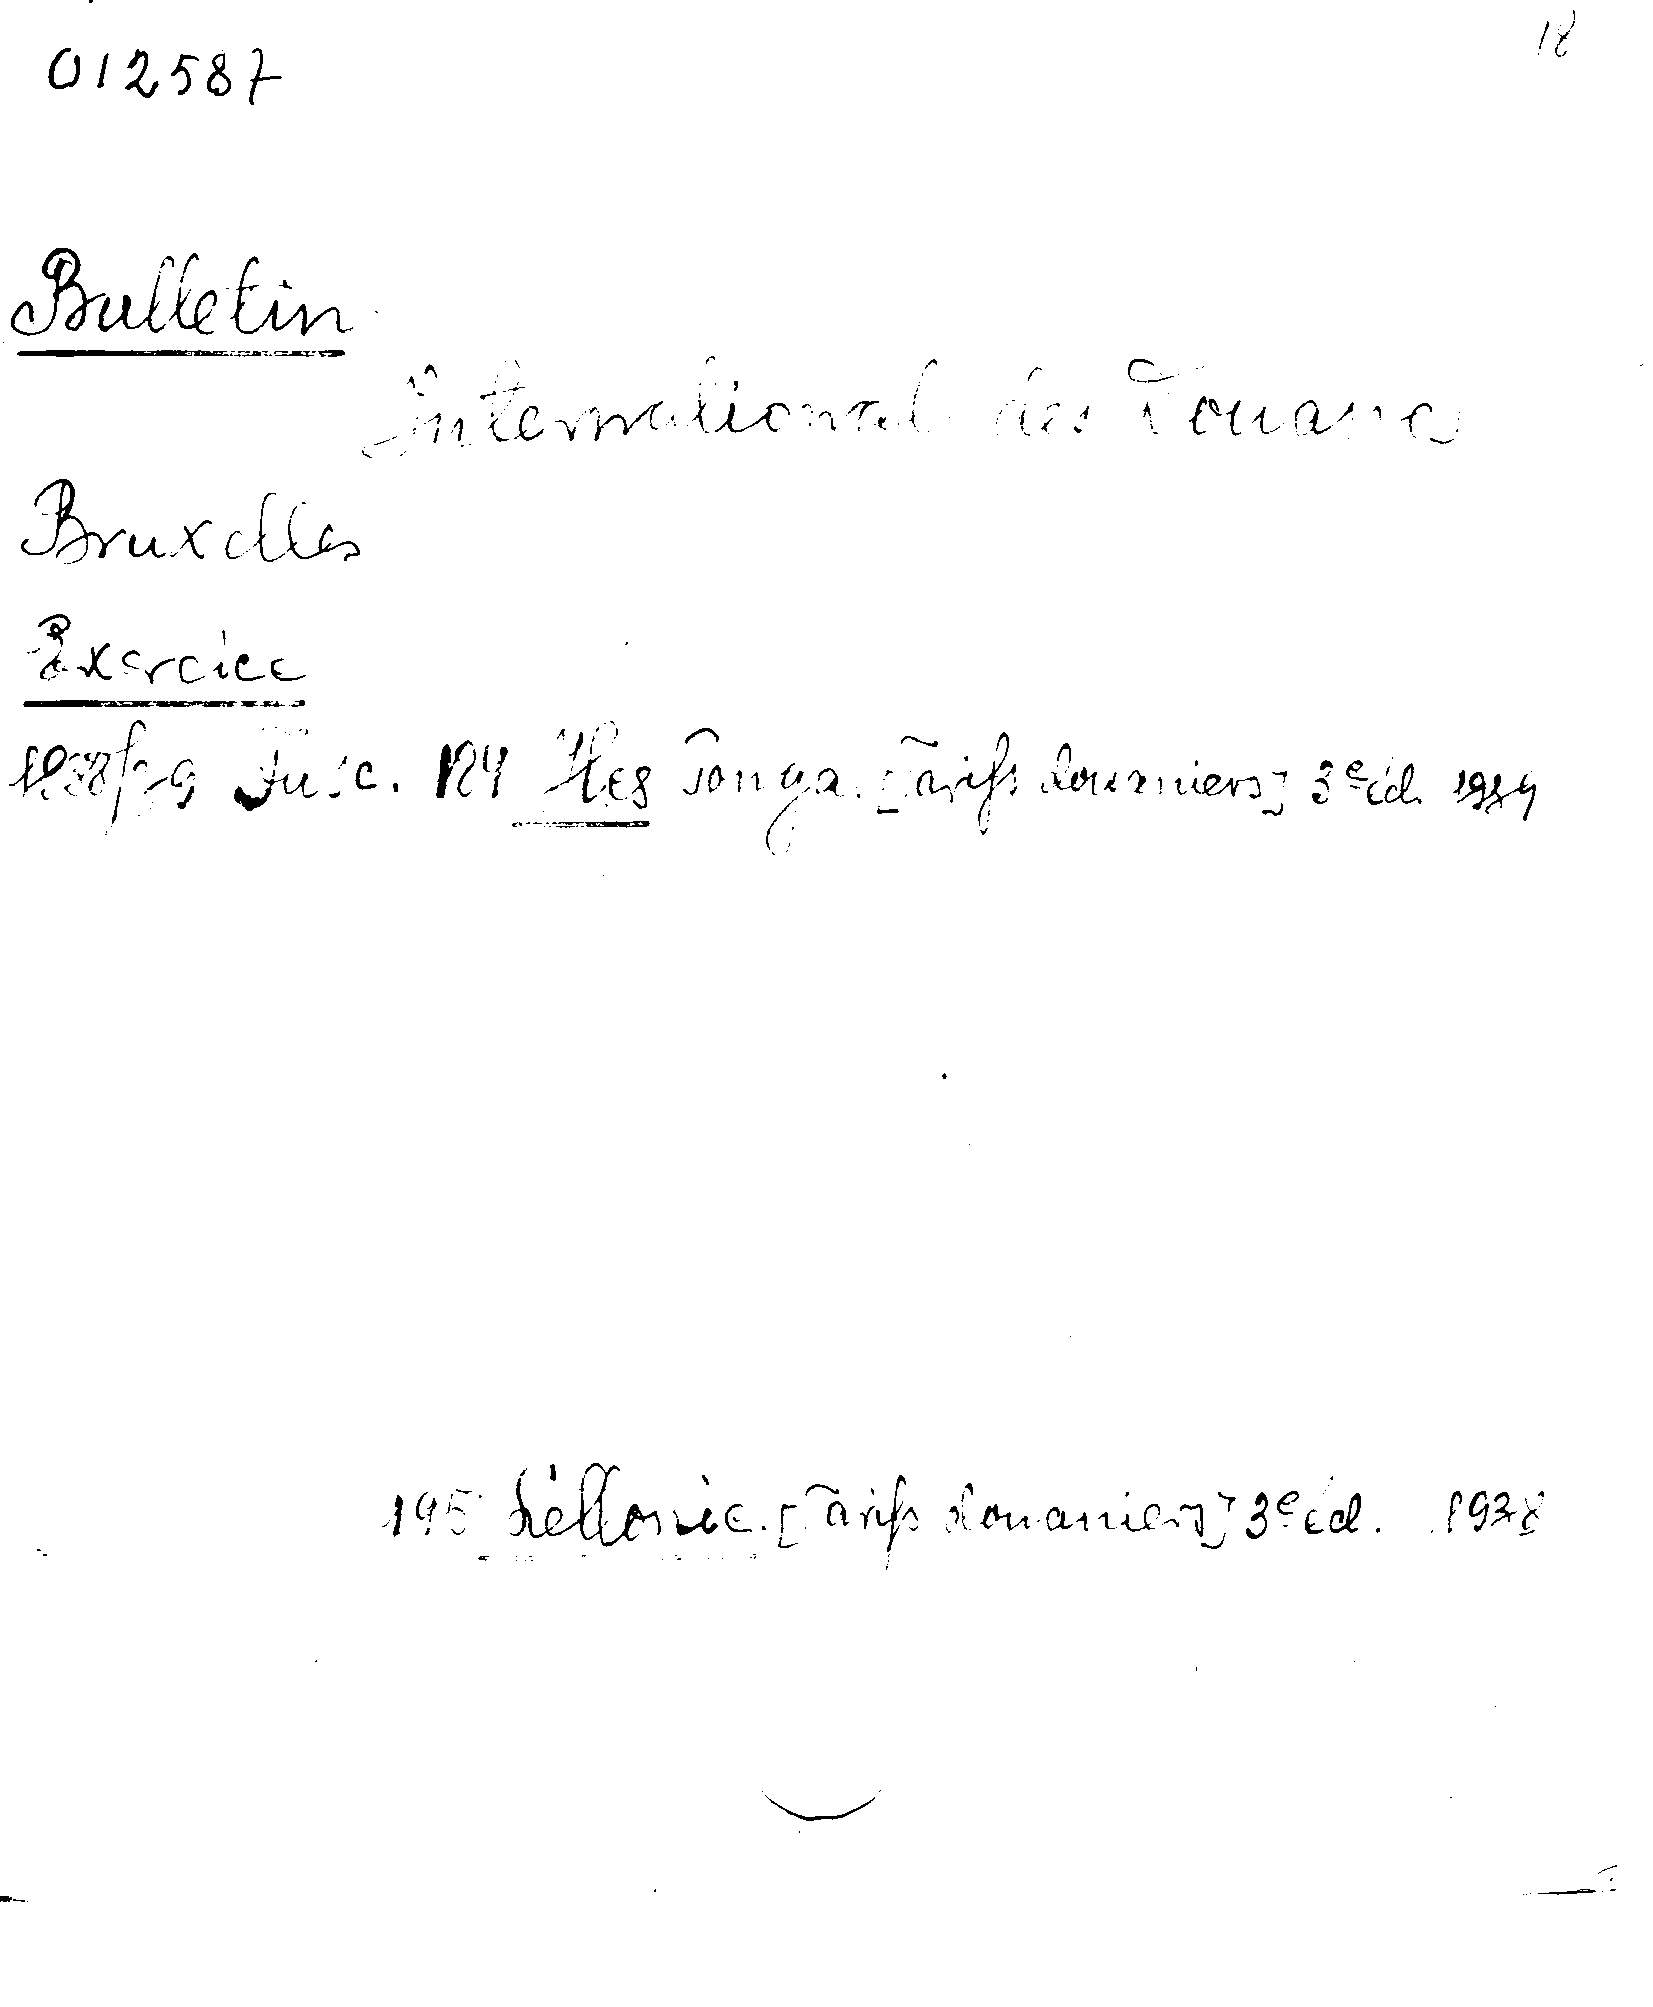 18
012587
Bulletin
International des Douanes
Bruxelles
Exercice
1938/39 Fasc. 124 Iles Tonga. [Tarifs douaniers] 3e éd. 1939
195 Léttonie. [Tarifs douaniers] 3e éd. 1938